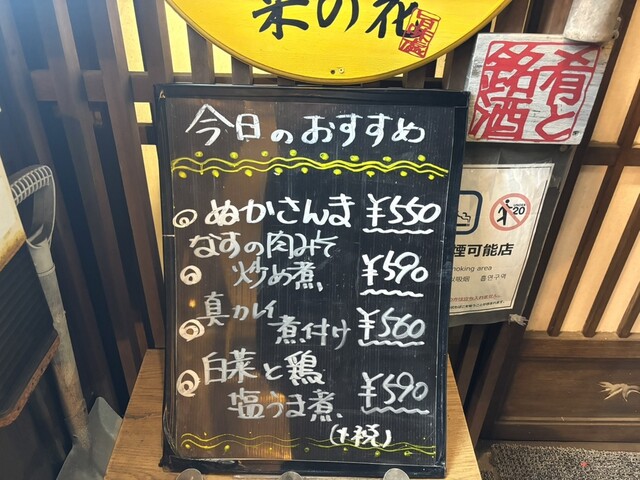 菜の花
肴と
銘酒
今日のおすすめ
◎ ぬかさんま ¥550
なすの肉みそ
◎ 炒め煮 ¥590
◎ 真カレイ
煮付け ¥560
◎ 白菜と鶏
塩うま煮 ¥590
(+税)
20
煙可能店
moking area
흡연구역